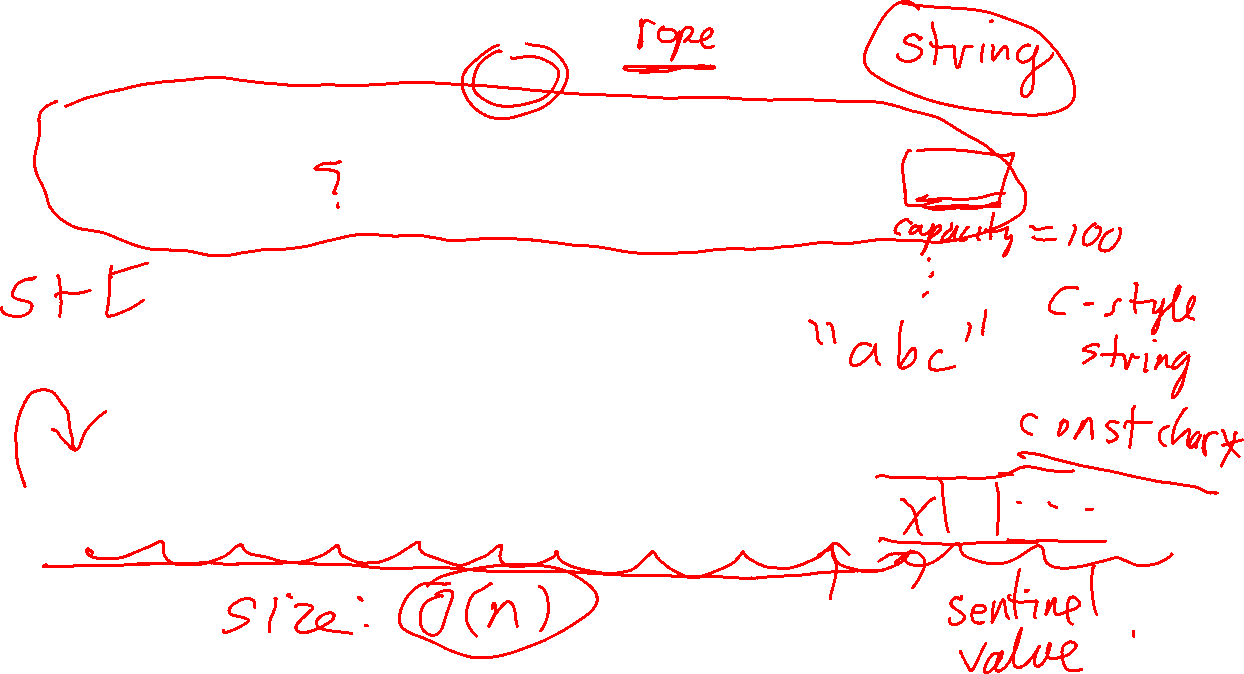 rope
string
?
capacity = 100
"abc"
C-style
string
const char*
X
...
size: O(n)
sentinel
value